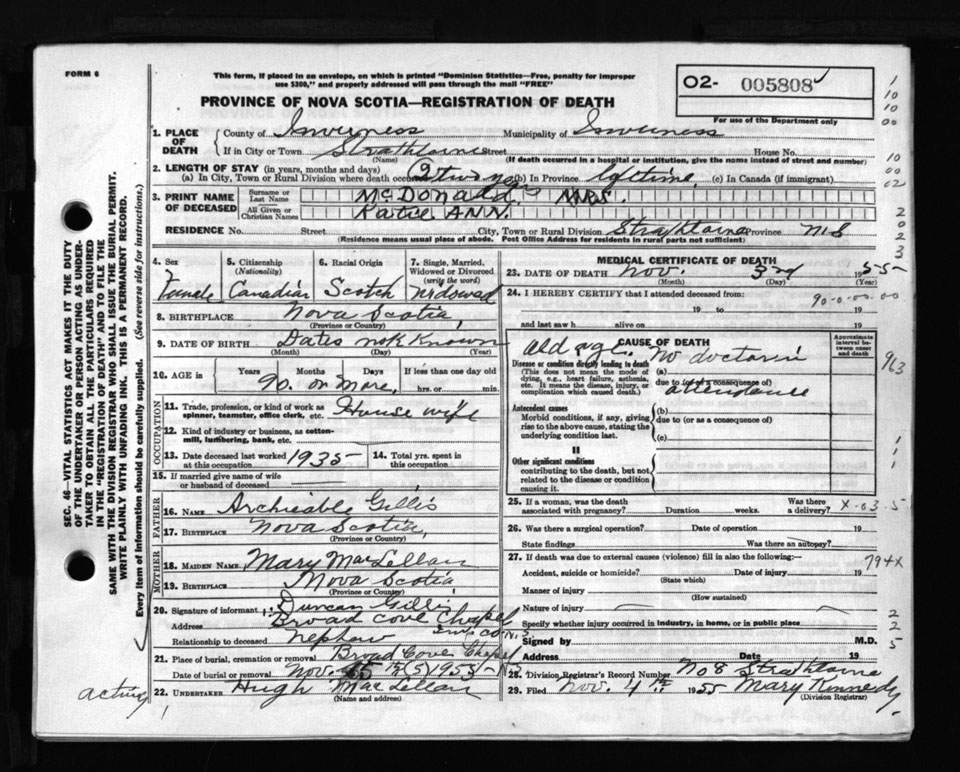 FORM 6
This form, if placed in an envelope, on which is printed "Dominion Statistics—Free, penalty for improper
use $300," and properly addressed will pass through the mail "FREE"
PROVINCE OF NOVA SCOTIA—REGISTRATION OF DEATH
02- 005808
For use of the Department only
1. PLACE OF DEATH
County of Inverness Municipality of Inverness
If in City or Town Strathlorne Street House No.
(Name) (If death occurred in a hospital or institution, give the name instead of street and number)
2. LENGTH OF STAY (in years, months and days)
(a) In City, Town or Rural Division where death occurred 2 two yrs (b) In Province life time, (c) In Canada (if immigrant)
3. PRINT NAME OF DECEASED
Surname or Last Name McDonald MRS.
All Given or Christian Names Katie ANN.
RESIDENCE No. Street City, Town or Rural Division Strathlorne Province N S
(Residence means usual place of abode. Post Office Address for residents in rural parts not sufficient)
4. Sex Female
5. Citizenship (Nationality) Canadian
6. Racial Origin Scotch
7. Single, Married, Widowed or Divorced (write the word) Widowed
8. BIRTHPLACE Nova Scotia,
(Province or Country)
9. DATE OF BIRTH Dates not Known
(Month) (Day) (Year)
10. AGE in Years Months Days If less than one day old
90. or more, hrs. or min.
OCCUPATION
11. Trade, profession, or kind of work as spinner, teamster, office clerk, etc. House wife
12. Kind of industry or business, as cotton-mill, lumbering, bank, etc.
13. Date deceased last worked at this occupation 1935
14. Total yrs. spent in this occupation
15. If married give name of wife or husband of deceased
FATHER
16. NAME Archieable Gillis
17. BIRTHPLACE Nova Scotia,
(Province or Country)
MOTHER
18. MAIDEN NAME Mary MacLellan
19. BIRTHPLACE Nova Scotia
(Province or Country)
20. Signature of informant Duncan Gillis
Address Broad Cove Chapel
Inv. Co N.S.
Relationship to deceased nephew
21. Place of burial, cremation or removal Broad Cove Chapel
Date of burial or removal Nov. 5 th (5) 1955 - N.S
22. UNDERTAKER Hugh MacLellan
(Name and address)
acting
MEDICAL CERTIFICATE OF DEATH
23. DATE OF DEATH Nov. 3rd 1955
(Month) (Day) (Year)
24. I HEREBY CERTIFY that I attended deceased from:
90-0-00-00
19 to 19
and last saw h alive on 19
CAUSE OF DEATH
Approximate interval between onset and death
old age. No doctor in
attendance
Disease or condition directly leading to death
(This does not mean the mode of dying, e.g., heart failure, asthenia, etc. It means the disease, injury, or complication which caused death.)
(a)
due to (or as a consequence of)
Antecedent causes
Morbid conditions, if any, giving rise to the above cause, stating the underlying condition last.
(b)
due to (or as a consequence of)
(c)
II
Other significant conditions
contributing to the death, but not related to the disease or condition causing it.
25. If a woman, was the death associated with pregnancy? Duration weeks. Was there a delivery? X-03-5
26. Was there a surgical operation? Date of operation 19
State findings Was there an autopsy?
27. If death was due to external causes (violence) fill in also the following:—
Accident, suicide or homicide? Date of injury 19
(State which)
Manner of injury
(How sustained)
Nature of injury
Specify whether injury occurred in industry, in home, or in public place
Signed by M.D.
Address Date 19
28. Division Registrar's Record Number No 8 Strathlorne
29. Filed Nov. 4 th 1955 Mary Kennedy
(Division Registrar)
963
794x
SEC. 46—VITAL STATISTICS ACT MAKES IT THE DUTY
OF THE UNDERTAKER OR PERSON ACTING AS UNDERTAKER TO OBTAIN ALL THE PARTICULARS REQUIRED
IN THE "REGISTRATION OF DEATH" AND TO FILE THE
SAME WITH THE DIVISION REGISTRAR WHO SHALL ISSUE THE BURIAL PERMIT.
WRITE PLAINLY WITH UNFADING INK. THIS IS A PERMANENT RECORD.
Every item of information should be carefully supplied. (See reverse side for instructions.)